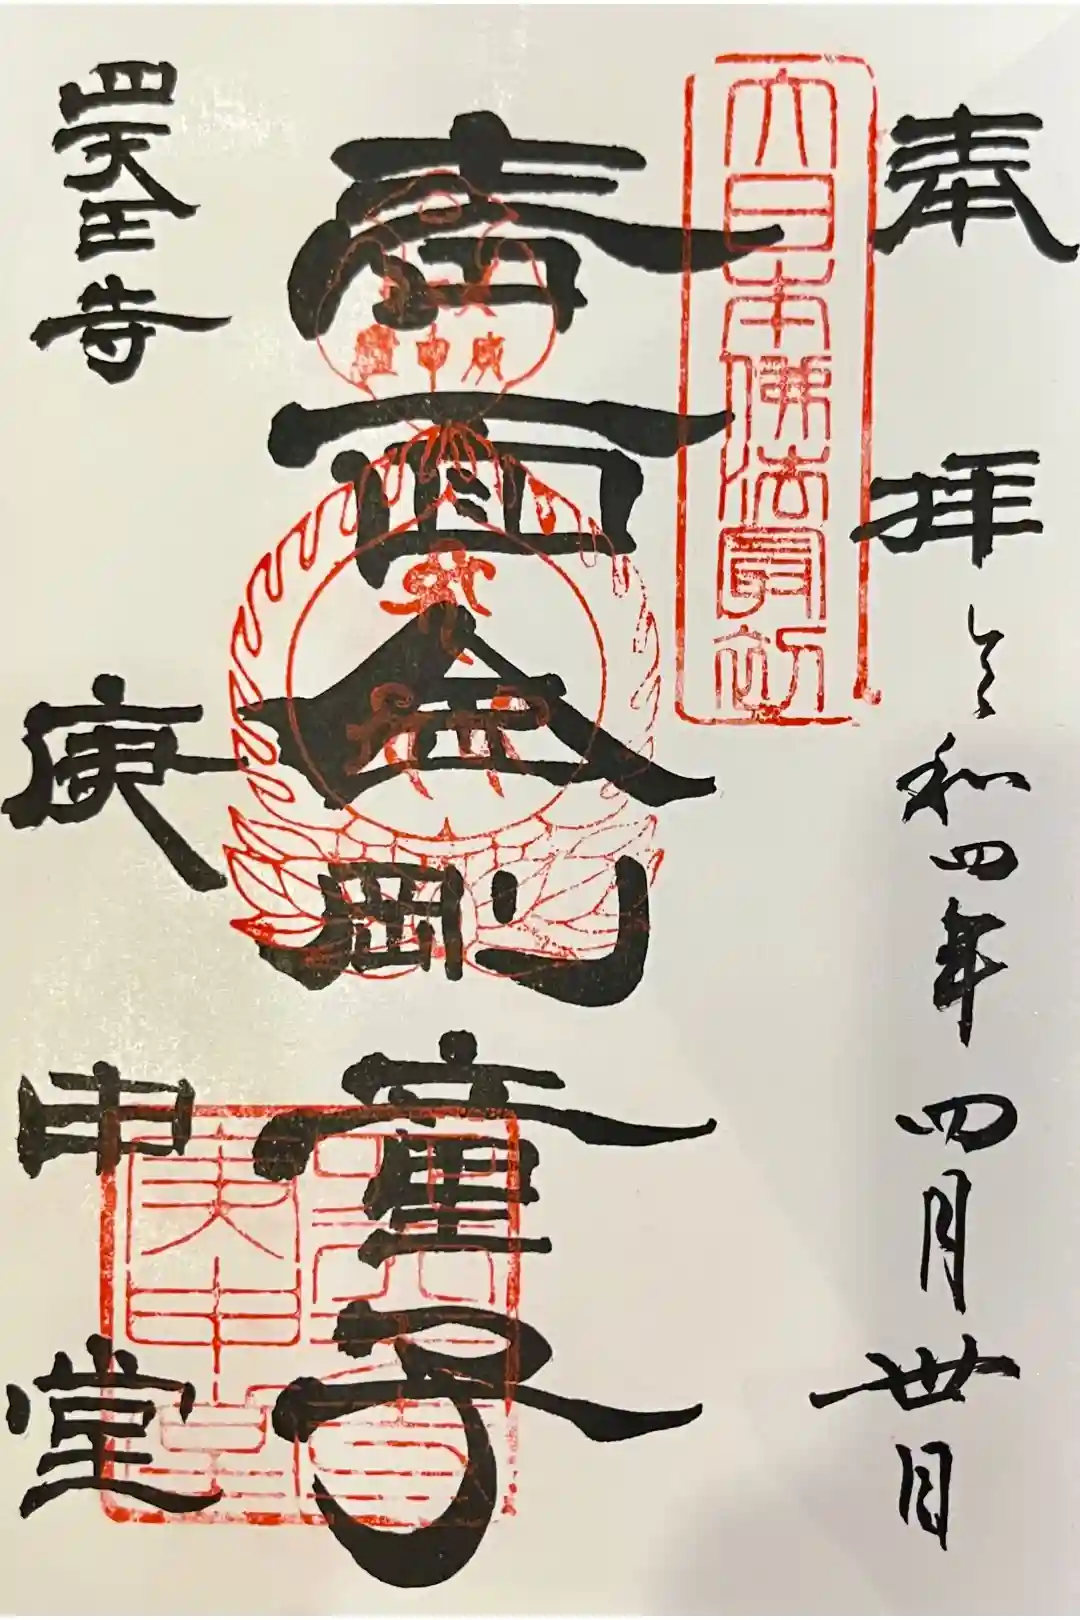 奉拝
令和四年四月丗日
大日本佛法最初
青面金剛童子
四天王寺
庚申堂
庚申堂